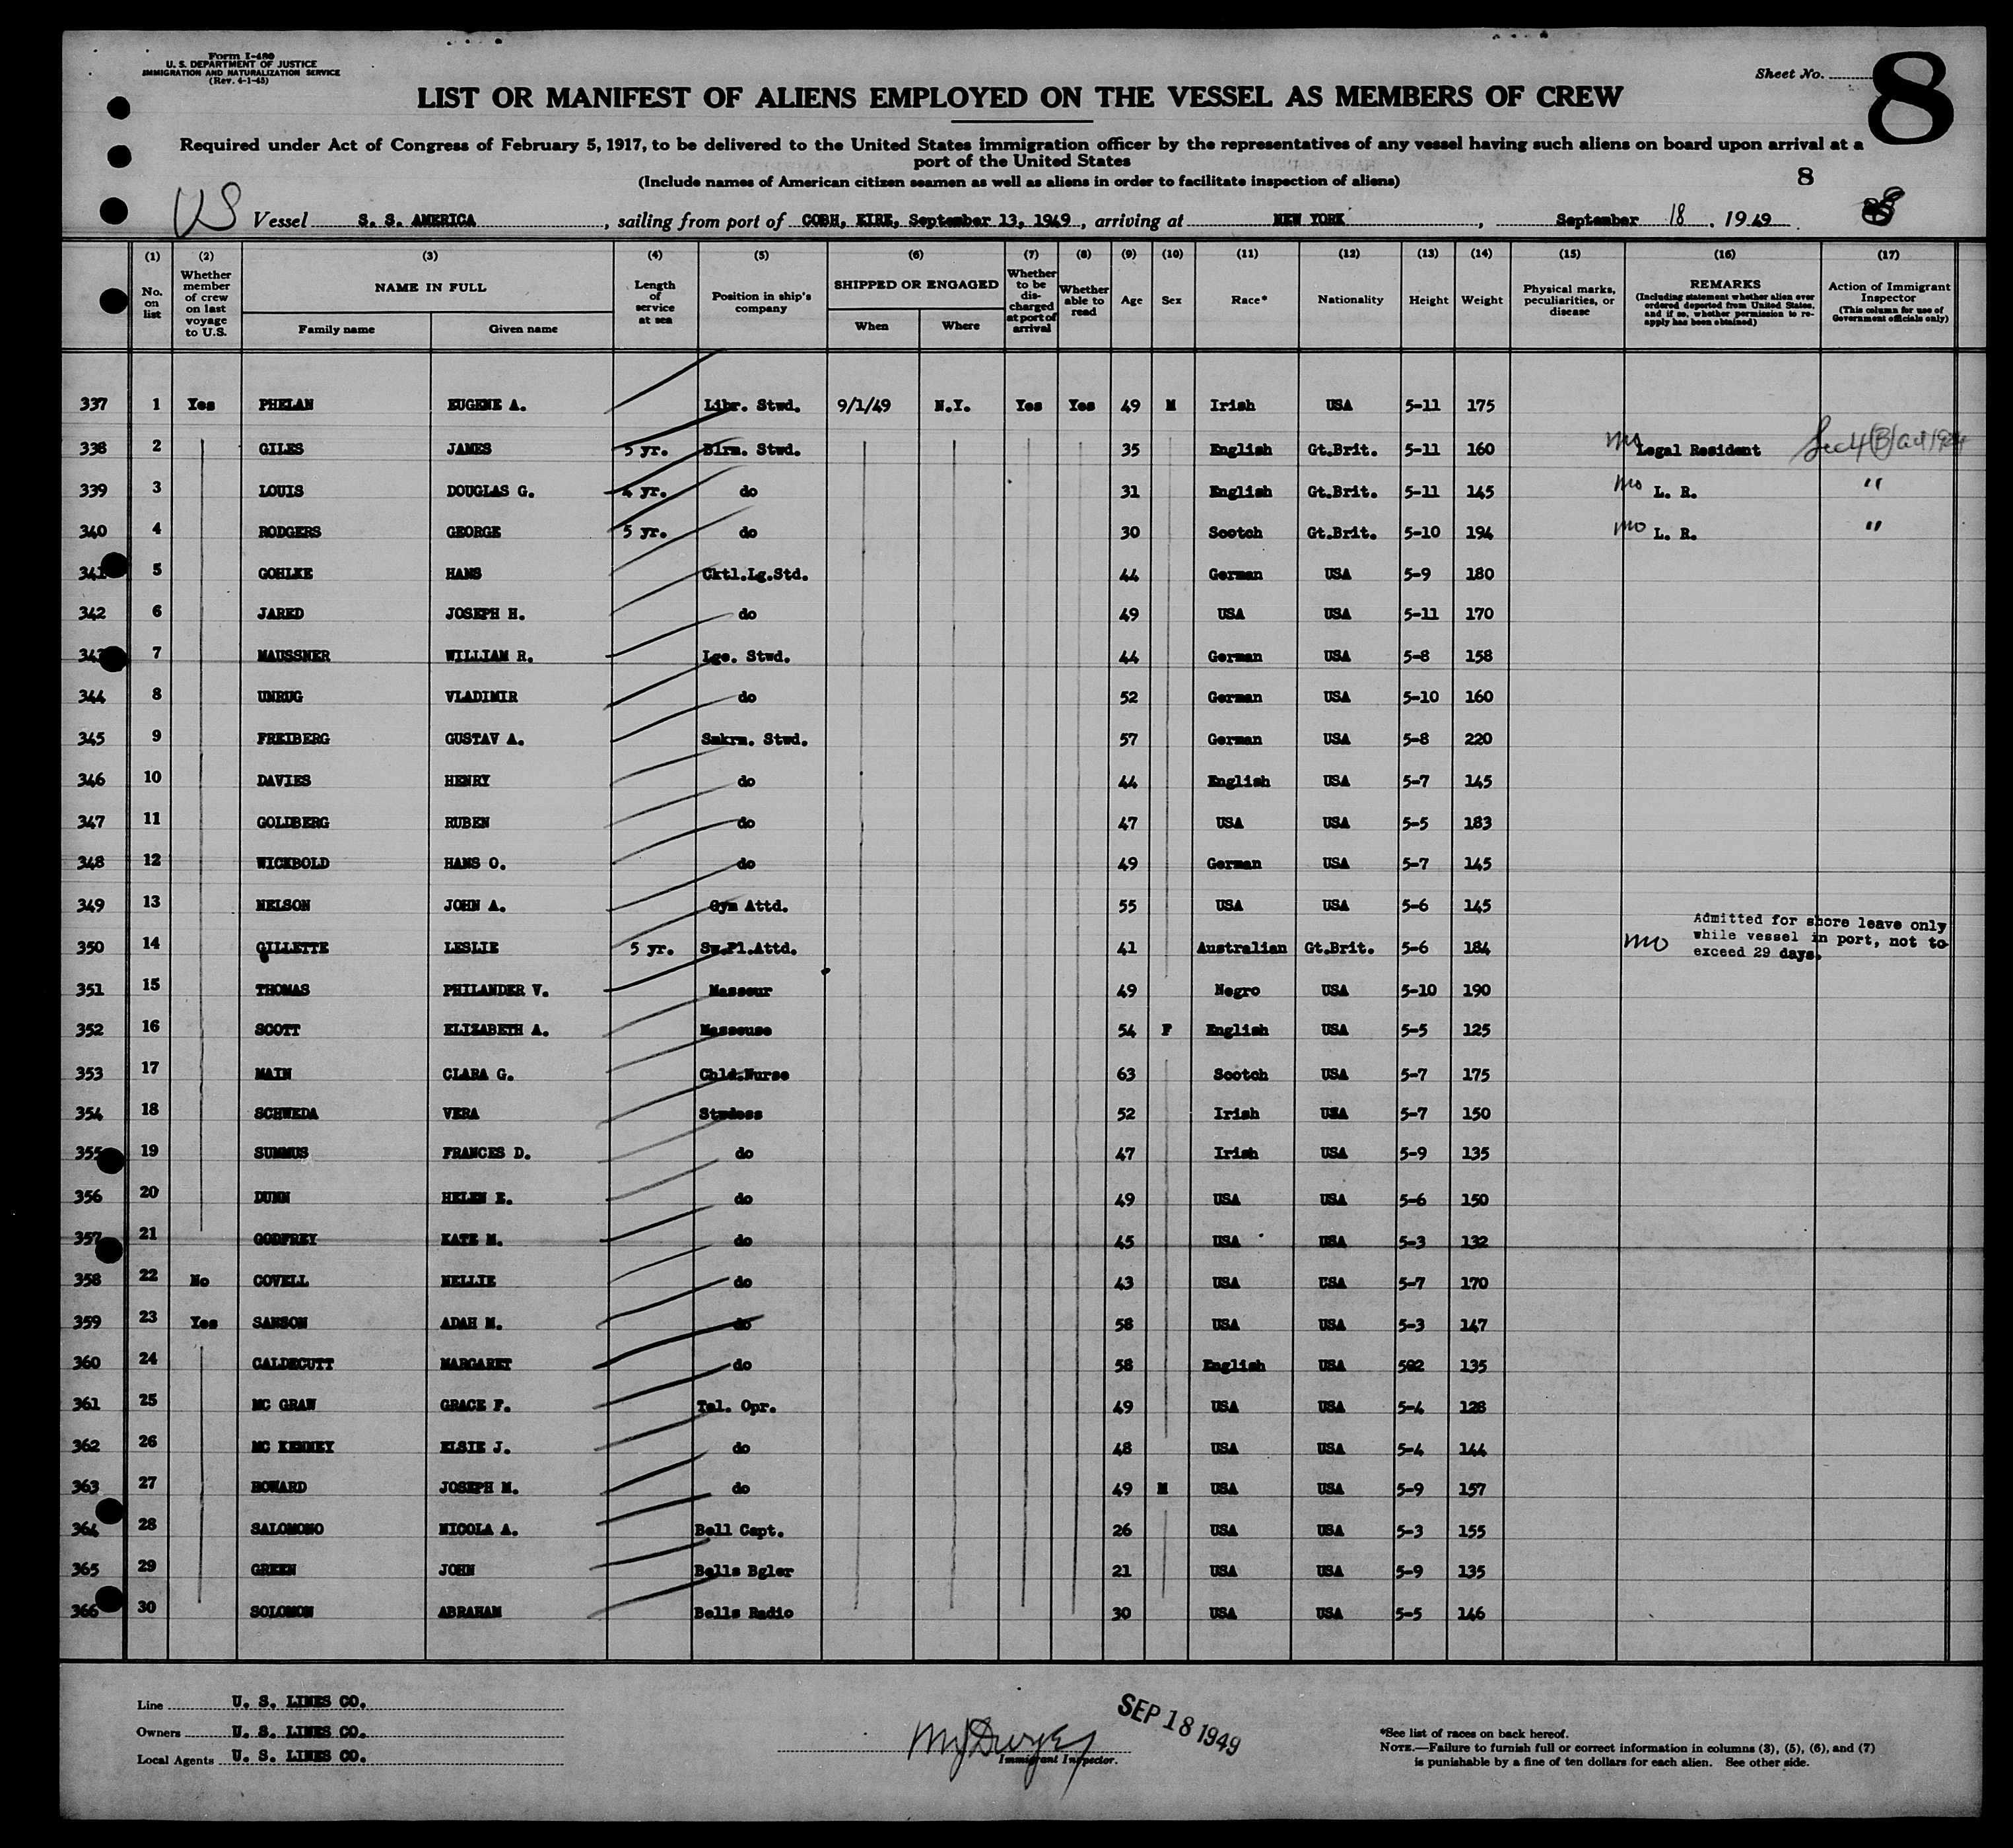 Form I-480
U. S. DEPARTMENT OF JUSTICE
IMMIGRATION AND NATURALIZATION SERVICE
(Rev. 4-1-45)
Sheet No. 8
LIST OR MANIFEST OF ALIENS EMPLOYED ON THE VESSEL AS MEMBERS OF CREW
Required under Act of Congress of February 5, 1917, to be delivered to the United States immigration officer by the representatives of any vessel having such aliens on board upon arrival at a
port of the United States
(Include names of American citizen seamen as well as aliens in order to facilitate inspection of aliens)
8
US Vessel S. S. AMERICA, sailing from port of COBH, EIRE, September 13, 1949, arriving at NEW YORK, September 18, 1949
(1) (2) (3) (4) (5) (6) (7) (8) (9) (10) (11) (12) (13) (14) (15) (16) (17)
No. on list
Whether member of crew on last voyage to U.S.
NAME IN FULL
Family name Given name
Length of service at sea
Position in ship's company
SHIPPED OR ENGAGED
When Where
Whether to be discharged at port of arrival
Whether able to read
Age Sex Race* Nationality Height Weight
Physical marks, peculiarities, or disease
REMARKS
(Including statement whether alien ever ordered deported from United States, and if so, whether permission to re-apply has been obtained)
Action of Immigrant Inspector
(This column for use of Government officials only)
337 1 Yes PHELAN EUGENE A. Libr. Stwd. 9/1/49 N.Y. Yes Yes 49 M Irish USA 5-11 175
338 2 GILES JAMES 5 yr. Blrm. Stwd. 35 English Gt.Brit. 5-11 160 Legal Resident Sec 4(B) act 1924
339 3 LOUIS DOUGLAS G. 4 yr. do 31 English Gt.Brit. 5-11 145 mo L. R. "
340 4 RODGERS GEORGE 5 yr. do 30 Scotch Gt.Brit. 5-10 194 mo L. R. "
341 5 GOHLKE HANS Cktl.Lg.Std. 44 German USA 5-9 180
342 6 JARED JOSEPH H. do 49 USA USA 5-11 170
343 7 MAUSSNER WILLIAM R. Lge. Stwd. 44 German USA 5-8 158
344 8 UNRUG VLADIMIR do 52 German USA 5-10 160
345 9 FREIBERG GUSTAV A. Smkrm. Stwd. 57 German USA 5-8 220
346 10 DAVIES HENRY do 44 English USA 5-7 145
347 11 GOLDBERG RUBEN do 47 USA USA 5-5 183
348 12 WICKBOLD HANS O. do 49 German USA 5-7 145
349 13 NELSON JOHN A. Gym Attd. 55 USA USA 5-6 145
350 14 GILLETTE LESLIE 5 yr. Sw.Pl.Attd. 41 Australian Gt.Brit. 5-6 184 mo Admitted for shore leave only
while vessel in port, not to
exceed 29 days.
351 15 THOMAS PHILANDER V. Masseur 49 Negro USA 5-10 190
352 16 SCOTT ELIZABETH A. Masseuse 54 F English USA 5-5 125
353 17 MAIN CLARA G. Chld.Nurse 63 Scotch USA 5-7 175
354 18 SCHWEDA VERA Stwdess 52 Irish USA 5-7 150
355 19 SUMMUS FRANCES D. do 47 Irish USA 5-9 135
356 20 DUNN HELEN E. do 49 USA USA 5-6 150
357 21 GODFREY KATE M. do 45 USA USA 5-3 132
358 22 No COVELL NELLIE do 43 USA USA 5-7 170
359 23 Yes SANSON ADAH M. do 58 USA USA 5-3 147
360 24 CALDECUTT MARGARET do 58 English USA 502 135
361 25 MC GRAW GRACE F. Tel. Opr. 49 USA USA 5-4 128
362 26 MC KENNEY ELSIE J. do 48 USA USA 5-4 144
363 27 HOWARD JOSEPH M. do 49 M USA USA 5-9 157
364 28 SALOMONO NICOLA A. Bell Capt. 26 USA USA 5-3 155
365 29 GREEN JOHN Bells Bgler 21 USA USA 5-9 135
366 30 SOLOMON ABRAHAM Bells Radio 30 USA USA 5-5 146
Line U. S. LINES CO.
Owners U. S. LINES CO.
Local Agents U. S. LINES CO.
Immigrant Inspector.
SEP 18 1949
*See list of races on back hereof.
NOTE.—Failure to furnish full or correct information in columns (3), (5), (6), and (7)
is punishable by a fine of ten dollars for each alien. See other side.